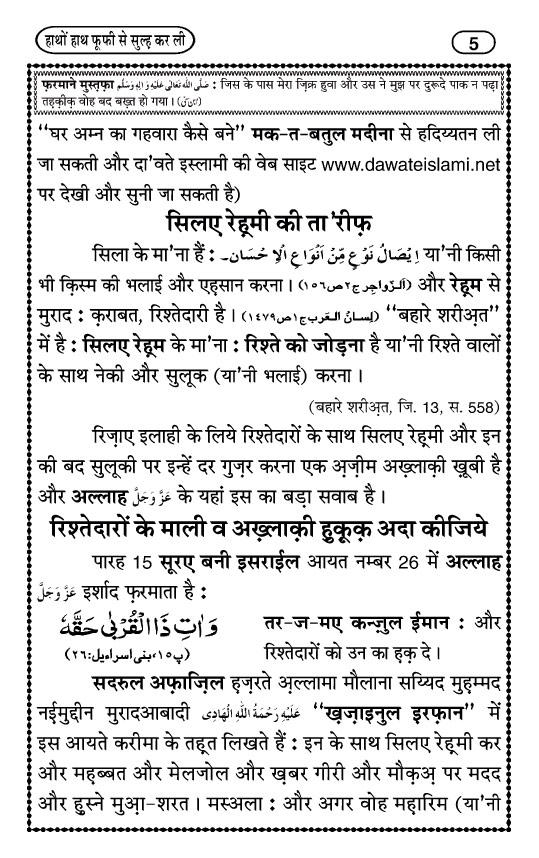 हाथों हाथ फूफी से सुल्ह कर ली
5
फ़रमाने मुस्तफ़ा صَلَّى اللهُ تَعَالٰى عَلَيْهِ وَاٰلِهٖ وَسَلَّم : जिस के पास मेरा ज़िक्र हुवा और उस ने मुझ पर दुरूदे पाक न पढ़ा
तहक़ीक़ वोह बद बख़्त हो गया । (ابن سنی)
‘‘घर अम्न का गहवारा कैसे बने’’ मक-त-बतुल मदीना से हदिय्यतन ली
जा सकती और दा’वते इस्लामी की वेब साइट www.dawateislami.net
पर देखी और सुनी जा सकती है)
सिलए रेह्मी की ता’रीफ़
सिला के मा’ना हैं : اِيْصَالُ نَوْعٍ مِّنْ اَنْوَاعِ الْاِحْسَان۔ या’नी किसी
भी क़िस्म की भलाई और एह़सान करना । (اَلزَّواجِر ج٢ص١٥٦) और रेह्म से
मुराद : क़राबत, रिश्तेदारी है । (لِسانُ العَرب ج١ص١٤٧٩) ‘‘बहारे शरीअ़त’’
में है : सिलए रेह्म के मा’ना : रिश्ते को जोड़ना है या’नी रिश्ते वालों
के साथ नेकी और सुलूक (या’नी भलाई) करना ।
(बहारे शरीअ़त, जि. 13, स. 558)
रिज़ाए इलाही के लिये रिश्तेदारों के साथ सिलए रेह्मी और इन
की बद सुलूकी पर इन्हें दर गुज़र करना एक अ़ज़ीम अख़्लाक़ी ख़ूबी है
और अल्लाह عَزَّوَجَلَّ के यहां इस का बड़ा सवाब है ।
रिश्तेदारों के माली व अख़्लाक़ी हुक़ूक़ अदा कीजिये
पारह 15 सूरए बनी इसराईल आयत नम्बर 26 में अल्लाह
عَزَّوَجَلَّ इर्शाद फ़रमाता है :
وَاٰتِ ذَا الْقُرْبٰى حَقَّهٗ
(پ١٥،بنی اسراءیل:٢٦)
तर-ज-मए कन्ज़ुल ईमान : और
रिश्तेदारों को उन का ह़क़ दे ।
सदरुल अफ़ाज़िल हज़रते अ़ल्लामा मौलाना सय्यिद मुहम्मद
नईमुद्दीन मुरादआबादी عَلَيْهِ رَحْمَةُ اللهِ الْهَادِى ‘‘ख़ज़ाइनुल इरफ़ान’’ में
इस आयते करीमा के तह़त लिखते हैं : इन के साथ सिलए रेह्मी कर
और महब्बत और मेलजोल और ख़बर गीरी और मौक़अ़ पर मदद
और हुस्ने मुआ़-शरत । मस्अला : और अगर वोह महारिम (या’नी